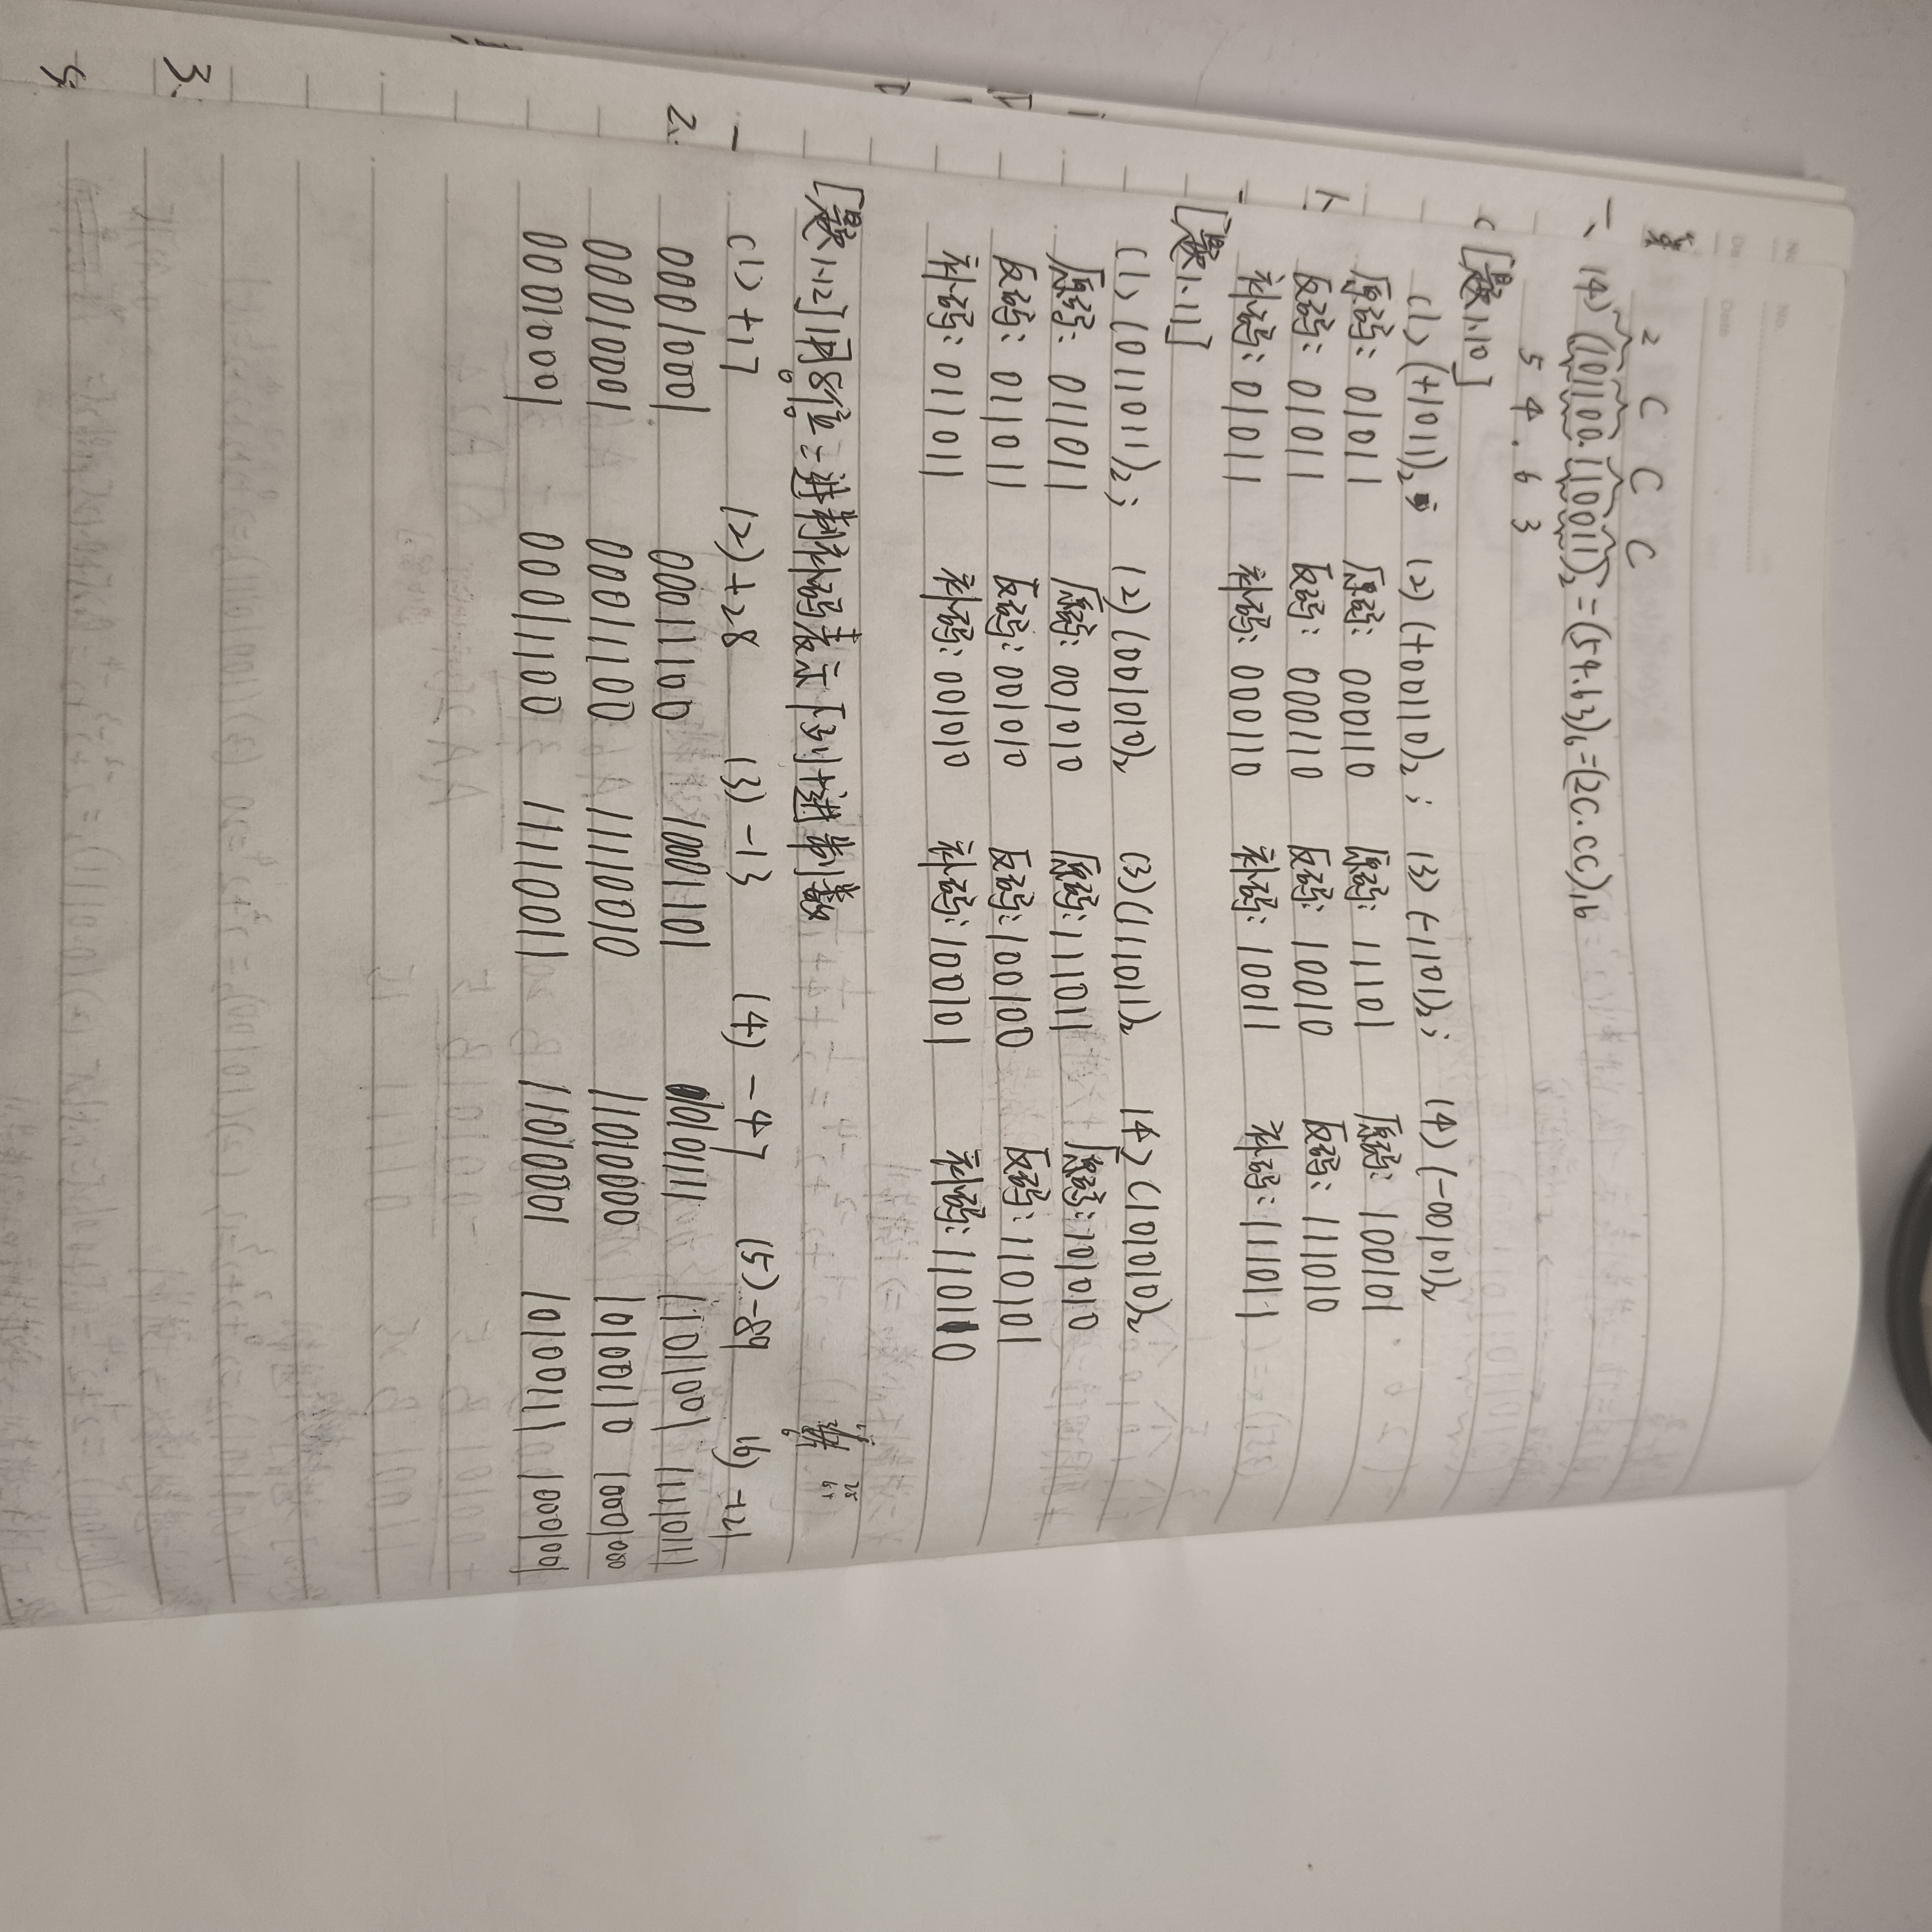 No.
Date
2 C C C
一、(4) (101100.110011)₂=(54.63)₆=(2C.CC)₁₆
5 4 . 6 3
[题1.10]
(1) (+1011)₂; (2) (+00110)₂; (3) (-1101)₂; (4) (-00101)₂
原码: 01011 原码: 000110 原码: 11101 原码: 100101
反码: 01011 反码: 000110 反码: 10010 反码: 111010
补码: 01011 补码: 000110 补码: 10011 补码: 111011
[题1.11]
(1) (011011)₂; (2) (001010)₂ (3) (111011)₂ (4) (101010)₂
原码: 011011 原码: 001010 原码: 111011 原码: 101010
反码: 011011 反码: 001010 反码: 100100 反码: 110101
补码: 011011 补码: 001010 补码: 100101 补码: 110110
[题1.12] 用8位二进制补码表示下列十进制数
(1) +17 (2) +28 (3) -13 (4) -47 (5) -89 (6) -121
00010001 00011100 10001101 10101111 11011001 11110111
00010001 00011100 11110010 11010000 10100110 10001000
00010001 00011100 11110011 11010001 10100111 10001001
2、
3、